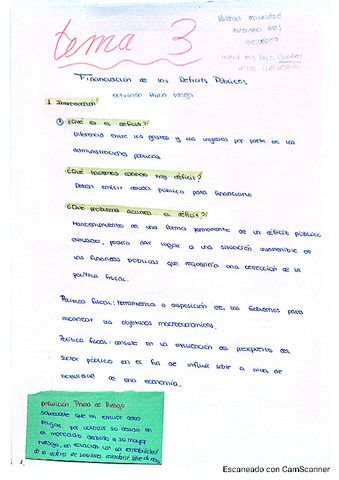 tema 3
Financiación de los Déficits Públicos
definición Prima Riesgo
1. Introducción
¿Qué es el déficit?
Diferencia entre los gastos y los ingresos por parte de las
administraciones públicas.
¿Qué hacemos cuando hay déficit?
Deben emitir deuda pública para financiarlo
¿Qué problema acarrea el déficit?
Mantenimiento de una forma permanente de un déficit público
elevado, podría dar lugar a una situación insostenible de
las finanzas públicas que requeriría una corrección de la
política fiscal.
Política fiscal: herramienta a disposición de los Gobiernos para
alcanzar los objetivos macroeconómicos.
Política fiscal: consiste en la utilización del presupuesto del
sector público en el fin de influir sobre el nivel de
de una economía.
Definición Prima de Riesgo
sobrecoste que un emisor debe
pagar por colocar su deuda en
el mercado debido a su mayor
riesgo, en relación con la rentabilidad
Escaneado con CamScanner